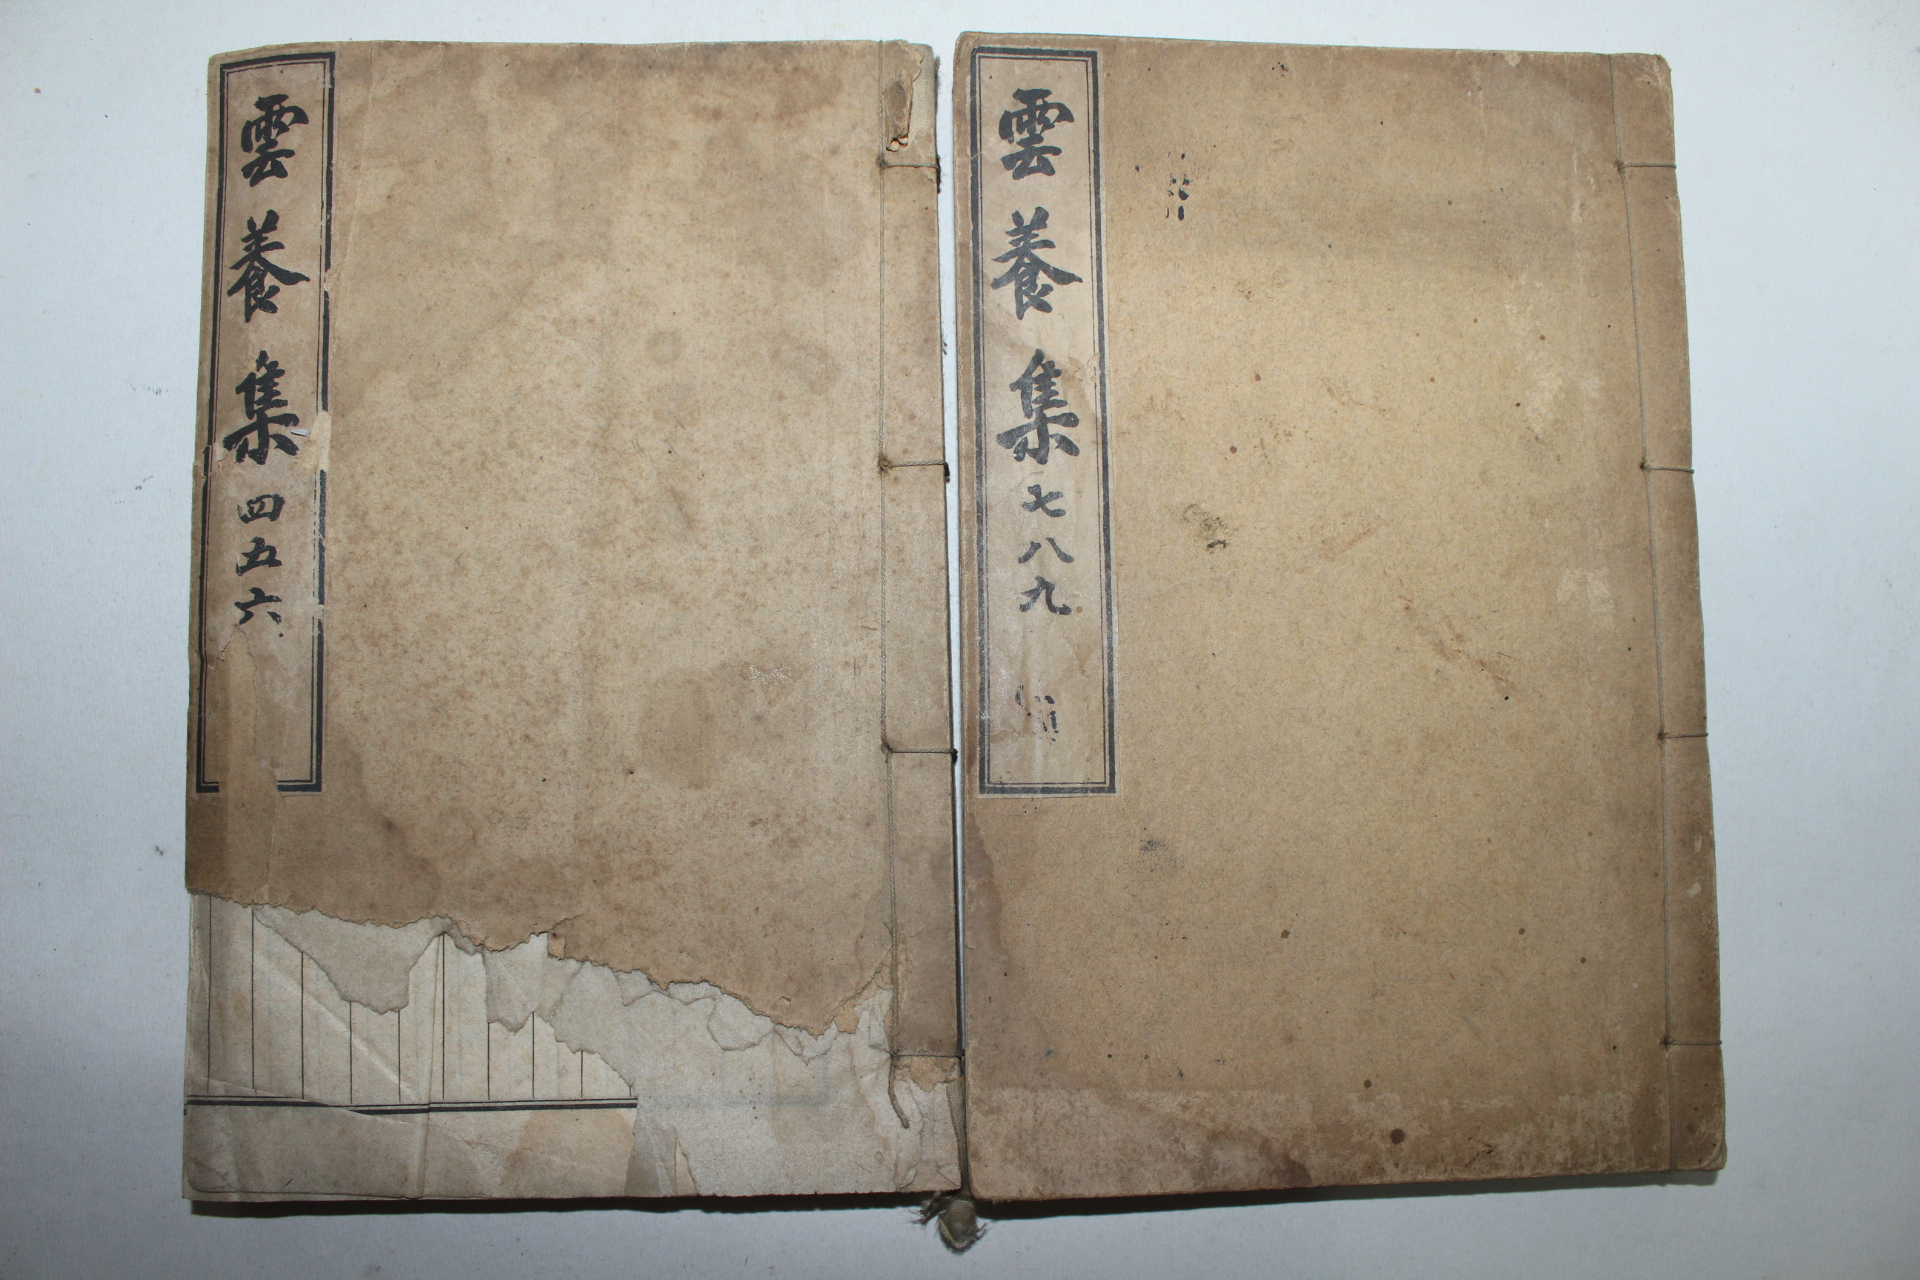 雲養集 四五六
雲養集 七八九